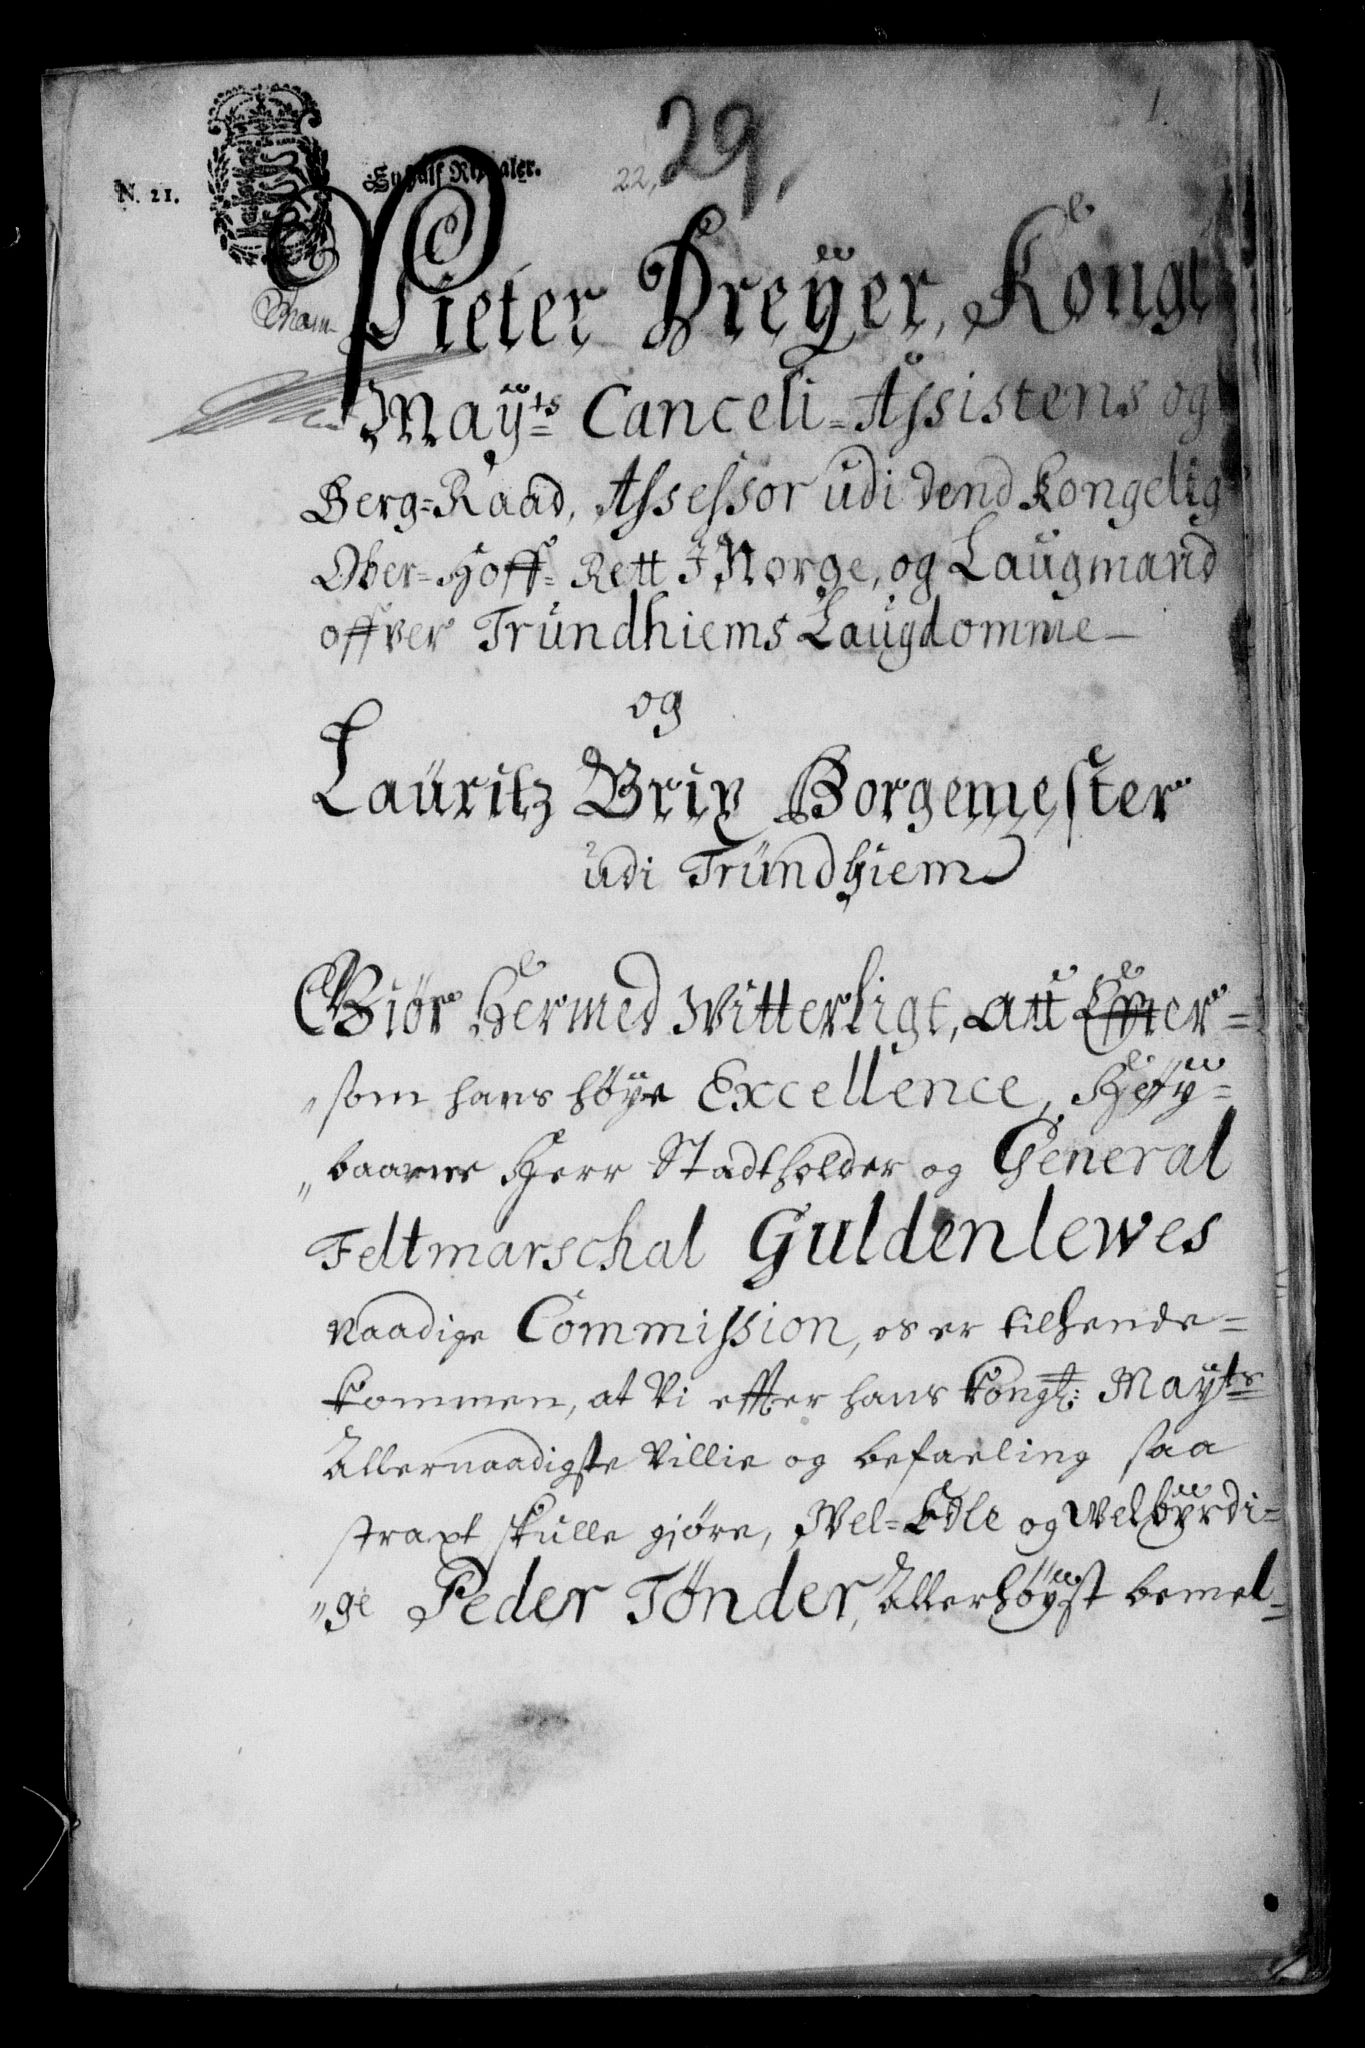 1.
22, 29,
N. 21. En half Rixdaler.
Pieter Dreÿer, Kongl
Maÿts Canceli-Assistens og
Berg-Raad, Assessor udi dend Kongelig
Ober-Hoff-Rett I Norge, og Laugmand
offver Trundhiems Laugdomme
og
Lauritz Brix Borgemester
udi Trundhiem
Giør Hermed Witterligt, att Effter-
som hans høye Excellence, Høÿ-
baarne Herr Stadtholder og General
Feltmarschal Guldenlewes
naadige Commission, os er tilhende-
kommen, at Vi effter hans Kongl: Maÿts
Allernaadigste Villie og befaeling saa
straxt skulle gjøre, Wel-Edle og Welbÿrdi-
ge Peder Tønder, Allerhøÿst bemel-